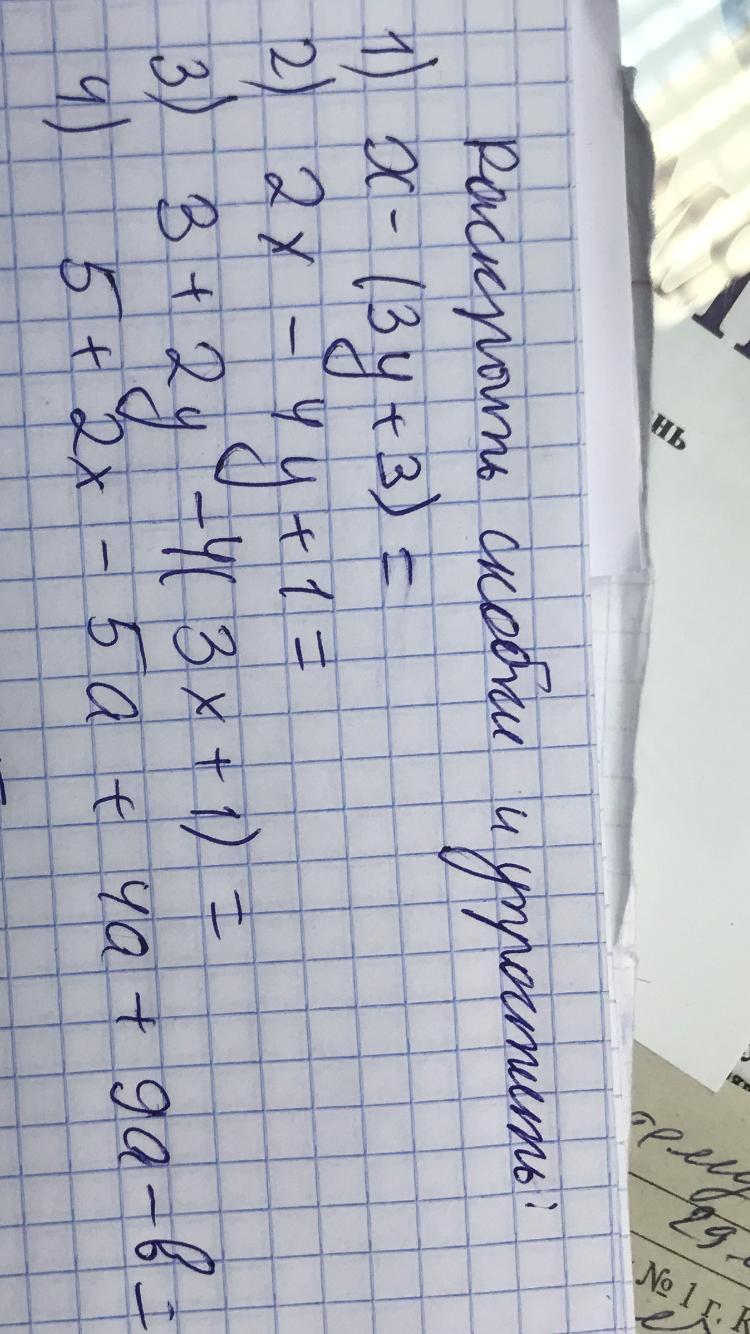 Раскрыть скобки и упростить:
1) x - (3y + 3) =
2) 2x - 4y + 1 =
3) 3 + 2y - 4(3x + 1) =
4) 5 + 2x - 5a + 4a + 9a - в =
нь
29
№ 1 г. К